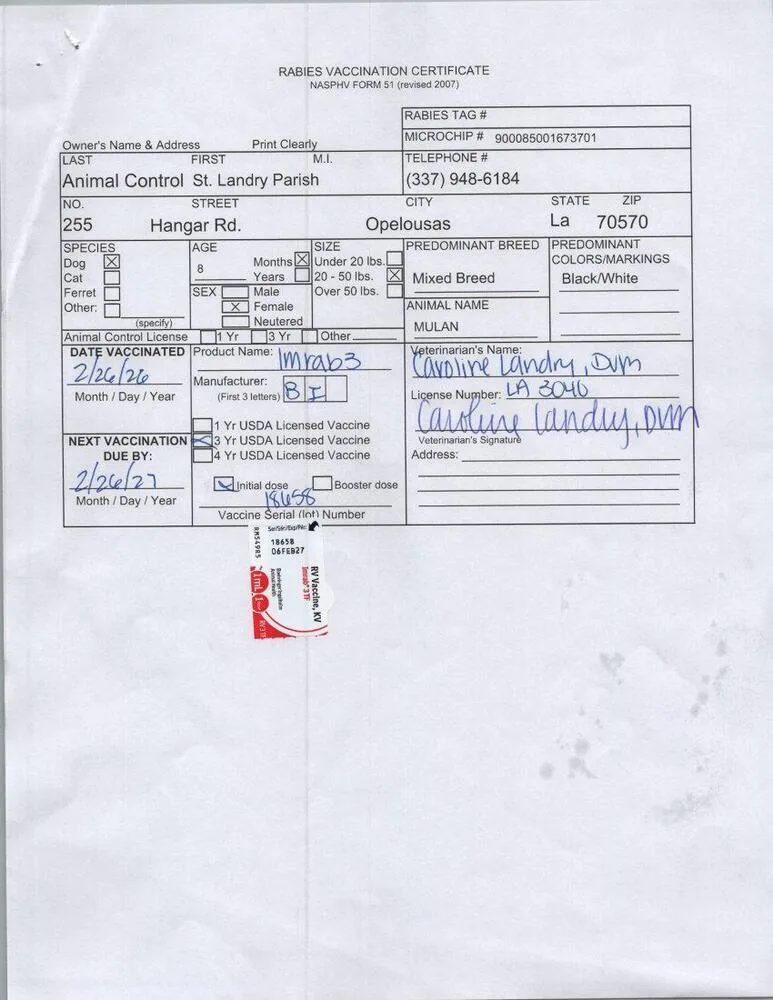 RABIES VACCINATION CERTIFICATE
NASPHV FORM 51 (revised 2007)
RABIES TAG #
MICROCHIP # 900085001673701
Owner's Name & Address Print Clearly
LAST FIRST M.I. TELEPHONE #
Animal Control St. Landry Parish (337) 948-6184
NO. STREET CITY STATE ZIP
255 Hangar Rd. Opelousas La 70570
SPECIES
Dog X
Cat
Ferret
Other:
(specify)
AGE
8
Months X
Years
SEX Male
X Female
Neutered
SIZE
Under 20 lbs.
20 - 50 lbs. X
Over 50 lbs.
PREDOMINANT BREED
Mixed Breed
ANIMAL NAME
MULAN
PREDOMINANT
COLORS/MARKINGS
Black/White
Animal Control License 1 Yr 3 Yr Other
DATE VACCINATED
2/26/26
Month / Day / Year
NEXT VACCINATION
DUE BY:
2/26/27
Month / Day / Year
Product Name: Imrab3
Manufacturer:
(First 3 letters) B I
1 Yr USDA Licensed Vaccine
3 Yr USDA Licensed Vaccine
4 Yr USDA Licensed Vaccine
Initial dose Booster dose
18658
Vaccine Serial (lot) Number
Veterinarian's Name:
Caroline Landry, DVM
License Number: LA 3040
Caroline Landry, DVM
Veterinarian's Signature
Address:
18658
06FEB27
RM549R5
RV Vaccine, KV
Imrab® 3 TF
Boehringer Ingelheim
1mL
RV 3 TF